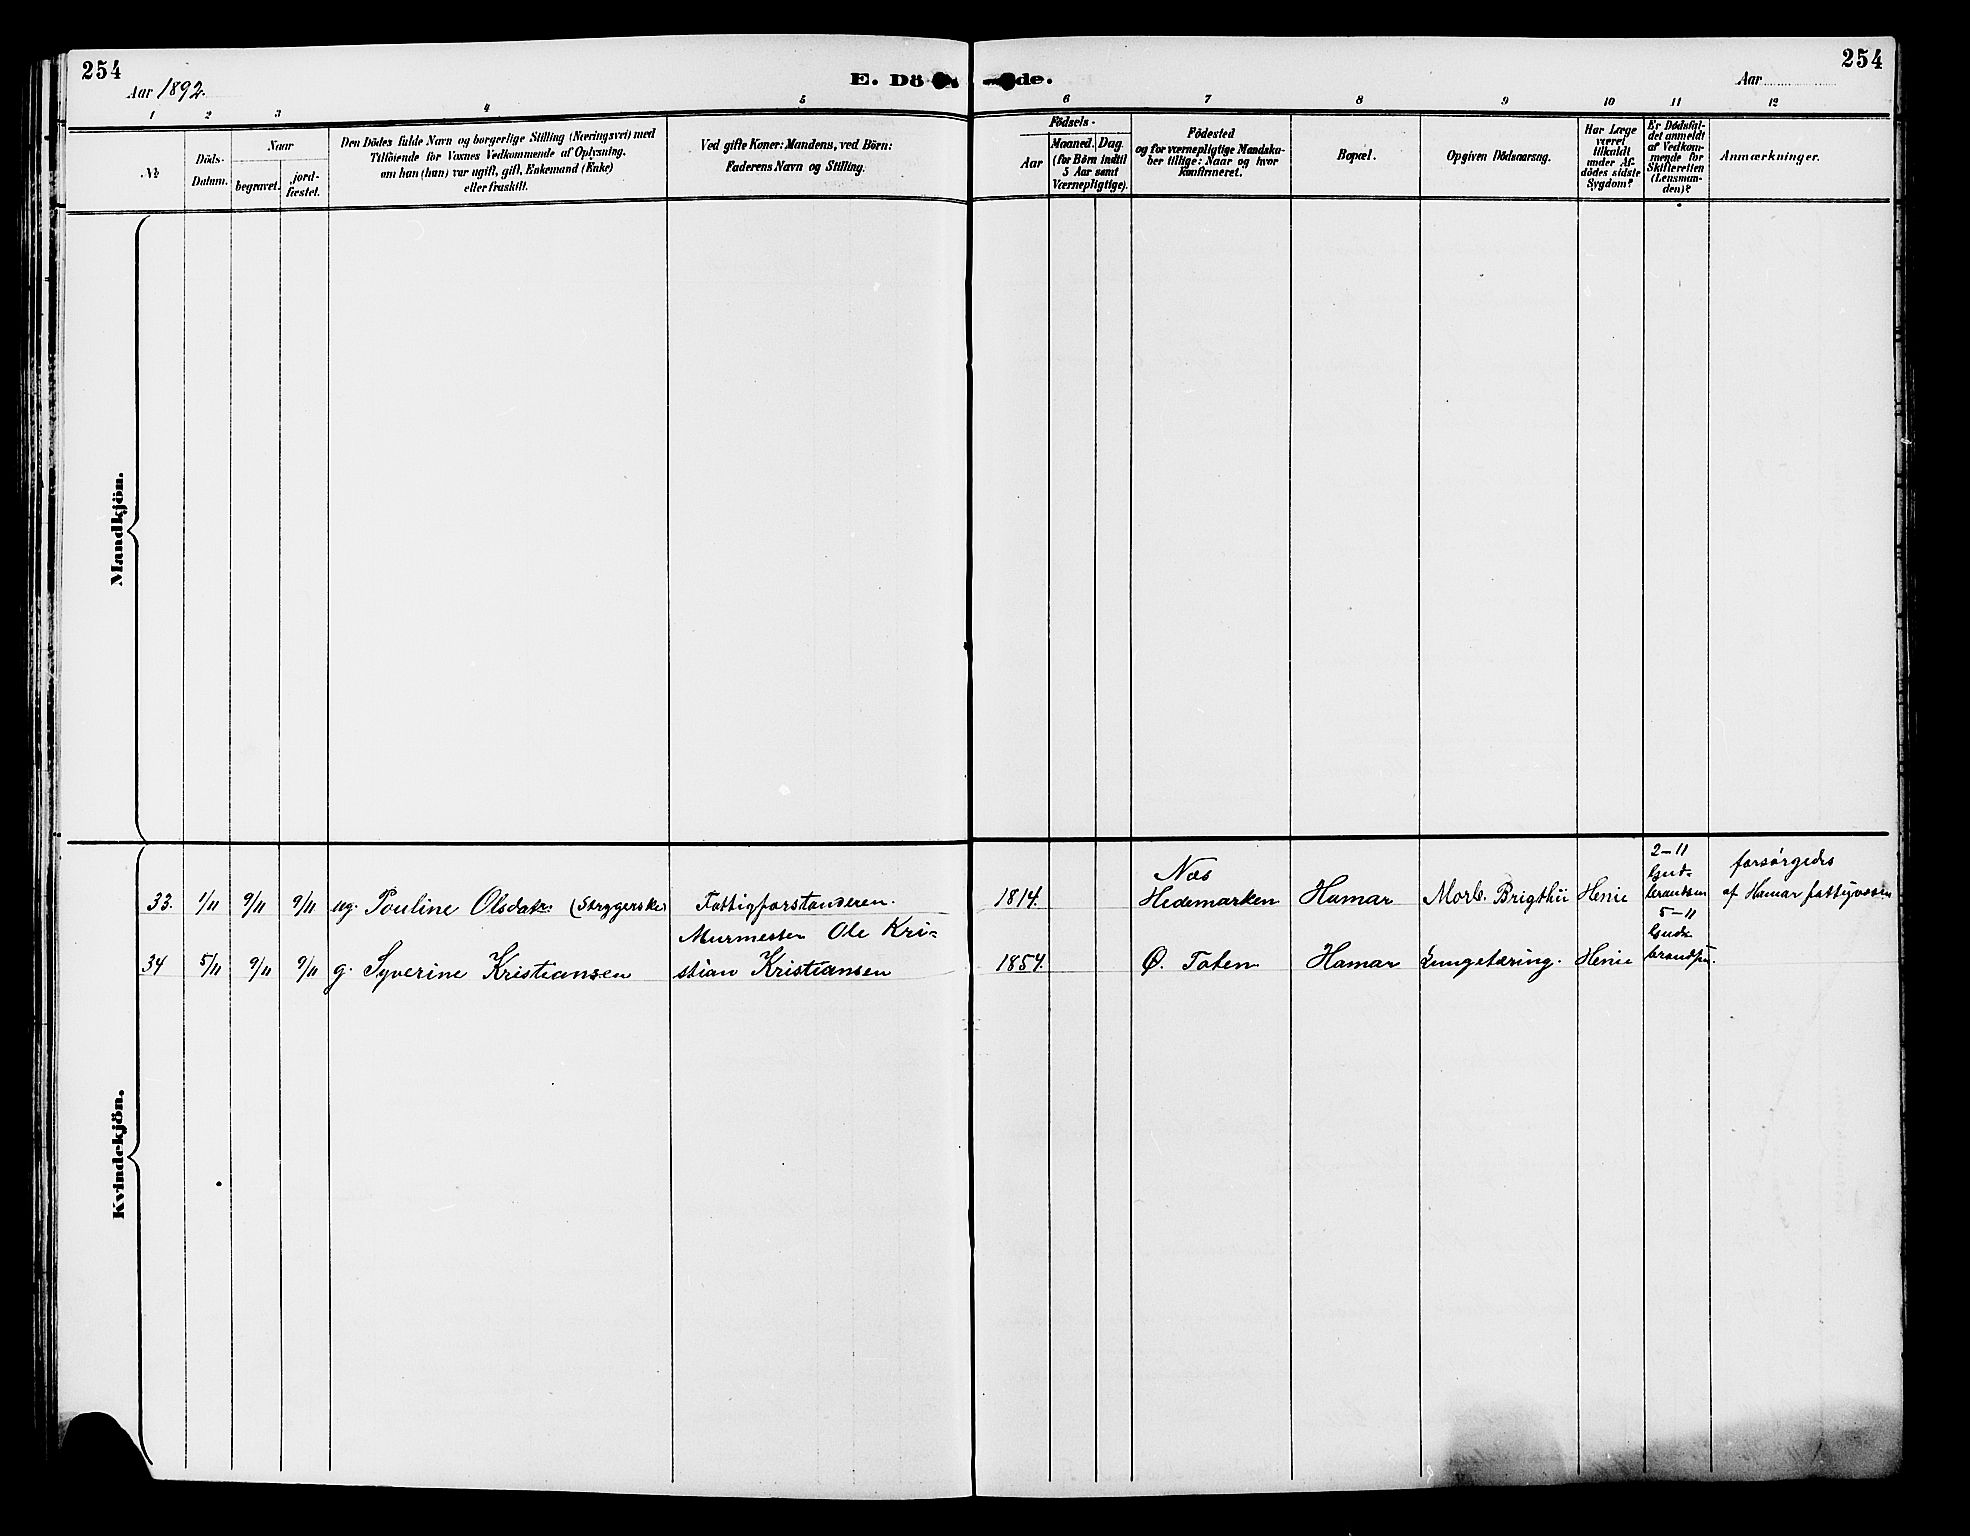 254
254
Aar 1892.
E. Dö
de.
Aar
1
2
3
4
5
6
7
8
9
10
11
12
№
Döds-
Datum.
Naar
begravet.
jord-
fæstet.
Den Dödes fulde Navn og borgerlige Stilling (Næringsvei) med
Tilföiende for Voxnes Vedkommende af Oplysning.
om han (hun) var ugift, gift, Enkemand (Enke)
eller fraskilt.
Ved gifte Koner: Mandens, ved Börn:
Faderens Navn og Stilling.
Födsels-
Aar
Maaned.
Dag.
(for Börn indtil
5 Aar samt
Værnepligtige).
Födested
og for værnepligtige Mandska-
ber tillige: Naar og hvor
Konfirmeret.
Bopæl.
Opgiven Dödsaarsag.
Har Læge
været
tilkaldt
under Af-
dödes sidste
Sygdom?
Er Dödsfal-
det anmeldt
af Vedkom-
mende for
Skifteretten
(Lensman-
den)?
Anmærkninger.
Mandkjön.
Kvindekjön.
33. 1/11 9/11 9/11 ug. Pouline Olsdatr. (Strygerske) Fattigforstanderen. 1814. Næs
Hedemarken Hamar Morb. Brigthii Henie 2-11
Gud-
brandsen forsørgedes
af Hamar fattigvæsen
34 5/11 9/11 9/11 g. Syverine Kristiansen Murmester Ole Kri=
stian Kristiansen 1854. Ø. Toten Hamar Lungetæring. Henie 5-11
Gud-
brandsen.